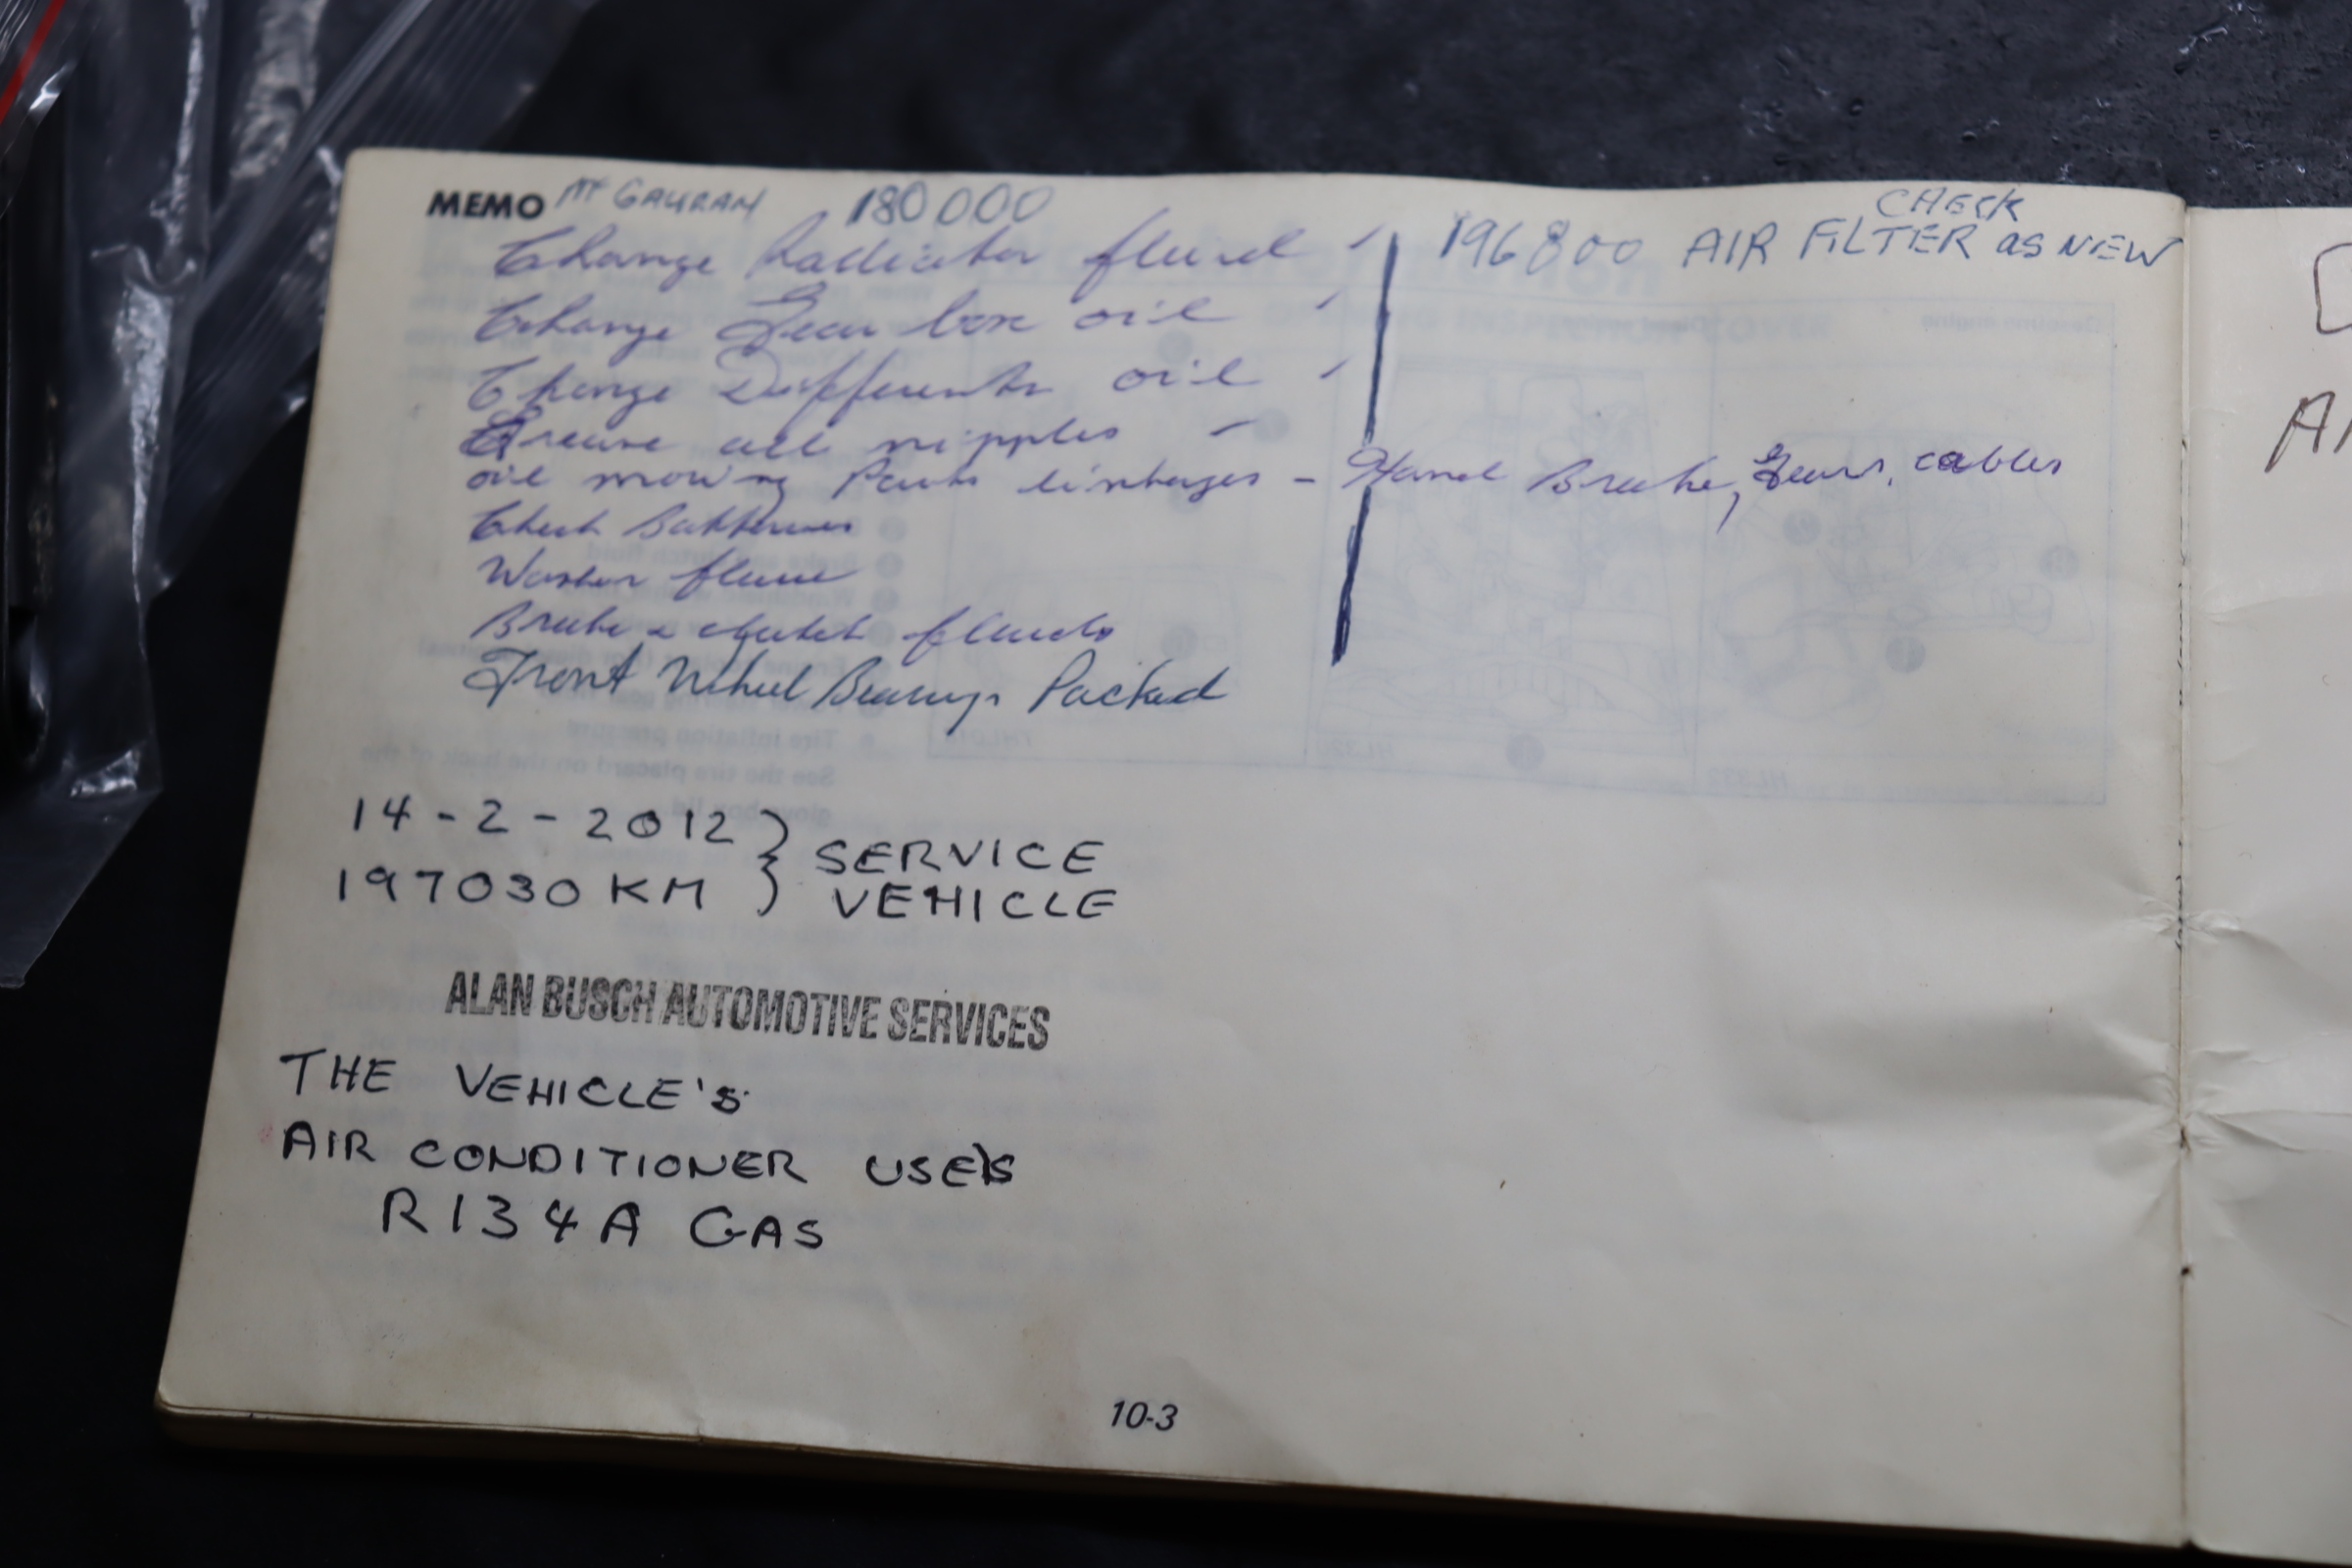 MEMO Mt GAURAN 180000
Change Radiator fluid
Change Gear box oil
Change Differents oil
Grease all nipples
oil mowing Parts linkages - Hand Brake, Gears, cables
Check Batteries
Washer fluid
Brake & clutch fluids
Front Wheel Bearings Packed
CHECK
196800 AIR FILTER as NEW
14-2-2012 } SERVICE
197030 KM } VEHICLE
ALAN BUSCH AUTOMOTIVE SERVICES
THE VEHICLE'S
AIR CONDITIONER USES
R134A GAS
10-3